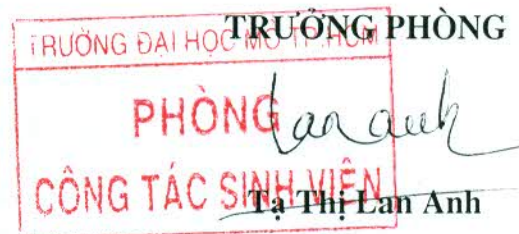 TRƯỞNG PHÒNG
TRƯỜNG ĐẠI HỌC MỞ TP.HCM
PHÒNG
Lan Anh
CÔNG TÁC SINH VIÊN
Tạ Thị Lan Anh